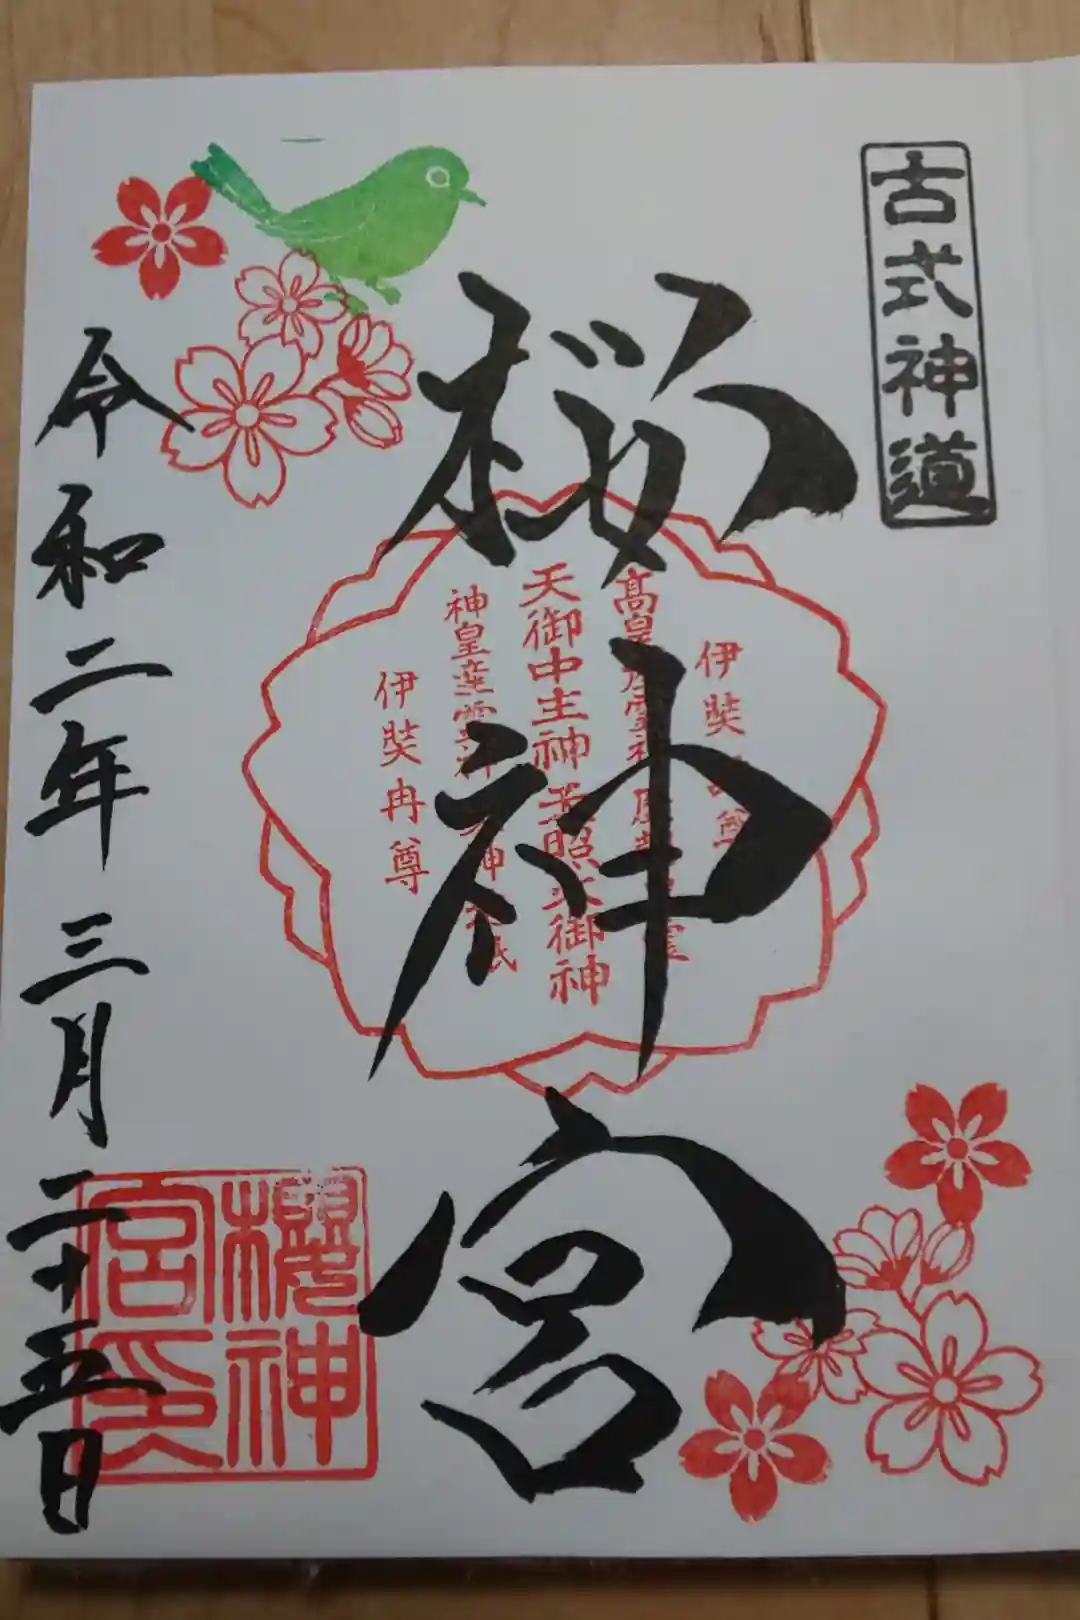 古式神道
桜神宮
伊奘 尊
高皇産霊神
天御中主神 天照大御神
神皇産霊神 神
伊奘冉尊
令和二年三月二十五日
櫻神
宮印